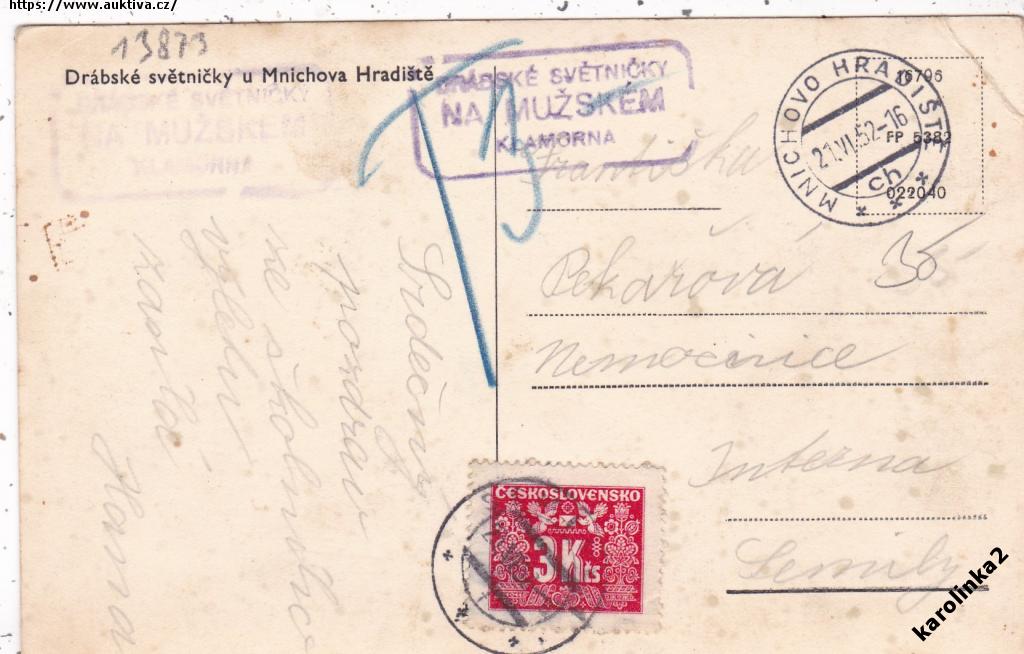 https://www.auktiva.cz/
13873
Drábské světničky u Mnichova Hradiště
DRÁBSKÉ SVĚTNIČKY
NA MUŽSKÉM
KLAMORNA
DRÁBSKÉ SVĚTNIČKY
NA MUŽSKÉM
KLAMORNA
MNICHOVO HRADIŠTĚ
21.VI.52-16
ch
16796
FP 5382
022040
Srdečný
pozdrav
ze školního
výletu
zasílá
Hana
Františka
Pekařova
Nemocnice
Interna
Semily
ČESKOSLOVENSKO
3 Kčs
karolinka2